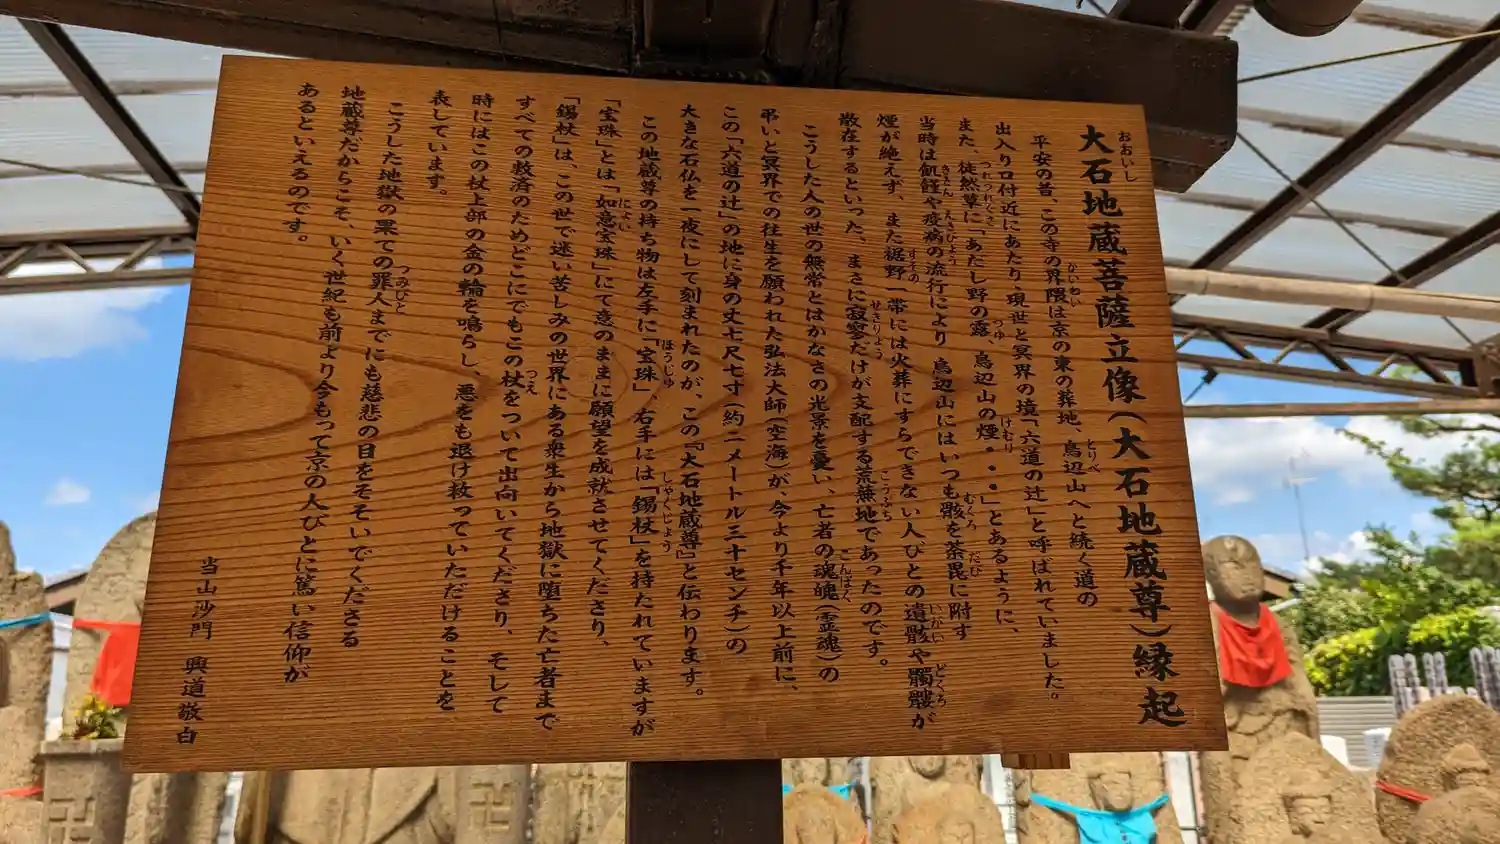 大石地蔵菩薩立像(大石地蔵尊)縁起
平安の昔、この寺の界隈は京の東の葬地、鳥辺山へと続く道の
出入り口付近にあたり、現世と冥界の境「六道の辻」と呼ばれていました。
また、徒然草に「あだし野の露、鳥辺山の煙・・・」とあるように、
当時は飢饉や疫病の流行により 鳥辺山にはいつも骸を荼毘に附す
煙が絶えず、また裾野一帯には火葬にすらできない人びとの遺骸や髑髏が
散在するといった、まさに寂寥だけが支配する荒蕪地であったのです。
こうした人の世の無常とはかなさの光景を憂い、亡者の魂魄(霊魂)の
弔いと冥界での往生を願われた弘法大師(空海)が、今より千年以上前に、
この「六道の辻」の地に身の丈七尺七寸(約二メートル三十センチ)の
大きな石仏を一夜にして刻まれたのが、この『大石地蔵尊』と伝わります。
この地蔵尊の持ち物は左手に「宝珠」、右手には「錫杖」を持たれていますが
「宝珠」とは「如意宝珠」にて意のままに願望を成就させてくださり、
「錫杖」は、この世で迷い苦しみの世界にある衆生から地獄に堕ちた亡者まで
すべての救済のためどこにでもこの杖をついて出向いてくださり、そして
時にはこの杖上部の金の輪を鳴らし、悪をも退け救っていただけることを
表しています。
こうした地獄の果ての罪人までにも慈悲の目をそそいでくださる
地蔵尊だからこそ、いく世紀も前より今もって京の人びとに篤い信仰が
あるといえるのです。
当山沙門 興道敬白